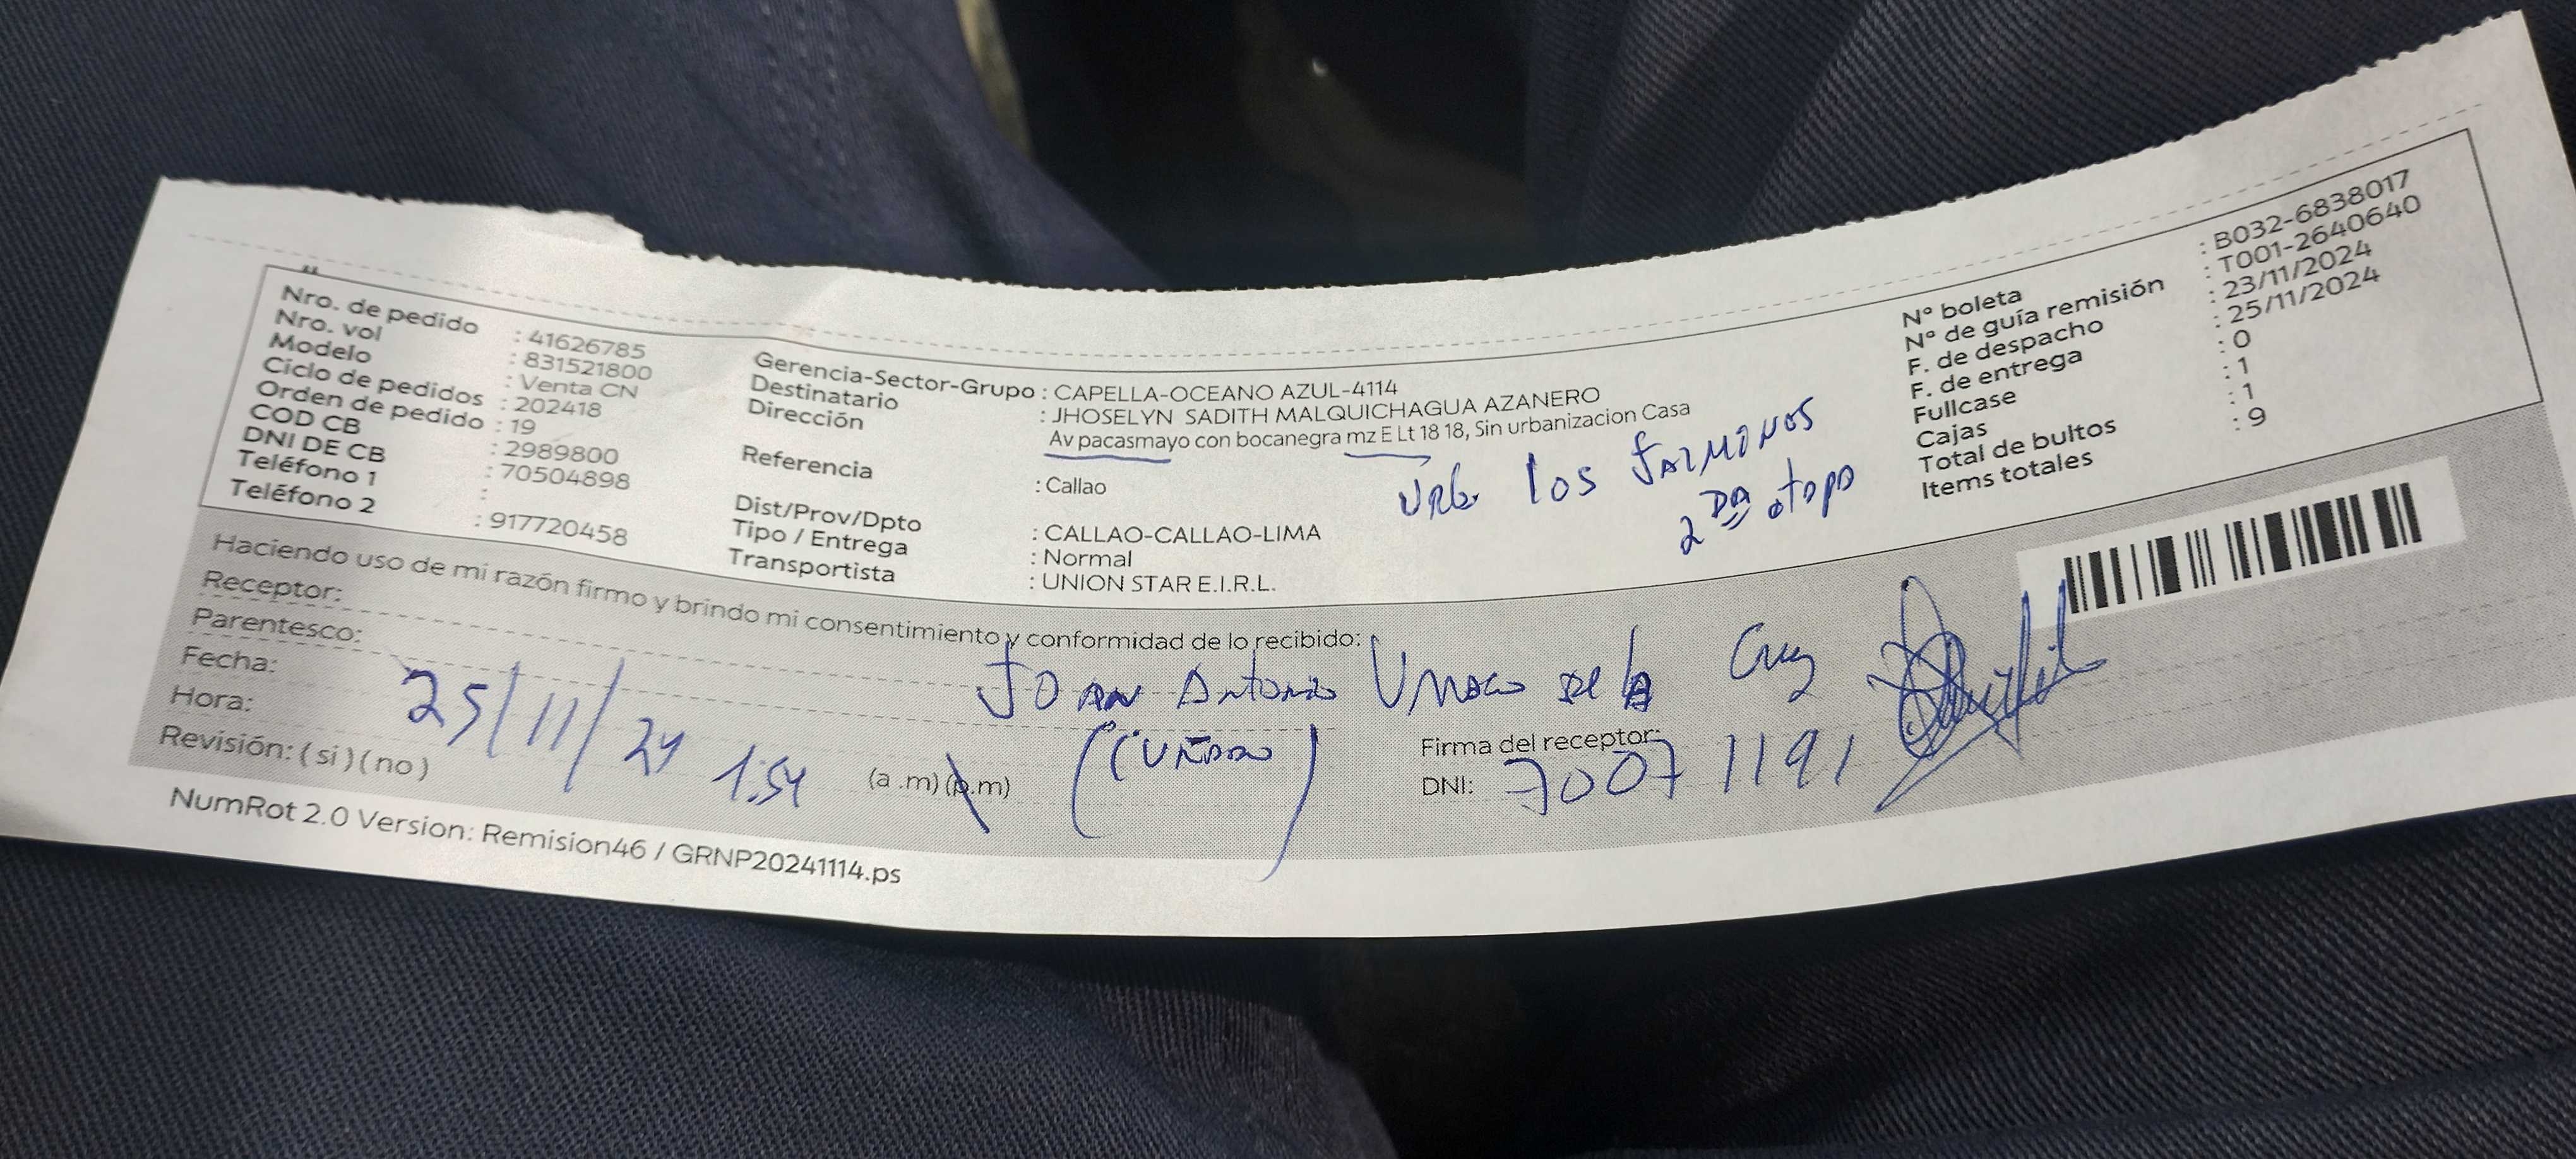 Nro. de pedido : 41626785
Nro. vol : 831521800
Modelo : Venta CN
Ciclo de pedidos : 202418
Orden de pedido : 19
COD CB : 2989800
DNI DE CB : 70504898
Teléfono 1 :
Teléfono 2 : 917720458
Gerencia-Sector-Grupo : CAPELLA-OCEANO AZUL-4114
Destinatario : JHOSELYN SADITH MALQUICHAGUA AZANERO
Dirección Av pacasmayo con bocanegra mz E Lt 18 18, Sin urbanizacion Casa
Referencia : Callao
URb. los JAZMINOS
2 DA etapa
Dist/Prov/Dpto : CALLAO-CALLAO-LIMA
Tipo / Entrega : Normal
Transportista : UNION STAR E.I.R.L.
Nº boleta : B032-6838017
Nº de guía remisión : T001-2640640
F. de despacho : 23/11/2024
F. de entrega : 25/11/2024
Fullcase : 0
Cajas : 1
Total de bultos : 1
Items totales : 9
Haciendo uso de mi razón firmo y brindo mi consentimiento y conformidad de lo recibido:
Receptor: JOAN Antonio de la Cruz
Parentesco: (CUÑADO)
Fecha: 25/11/24
Hora: 1:54 (a .m) (p.m)
Revisión: ( si ) ( no )
Firma del receptor:
DNI: 70071191
NumRot 2.0 Version: Remision46 / GRNP20241114.ps